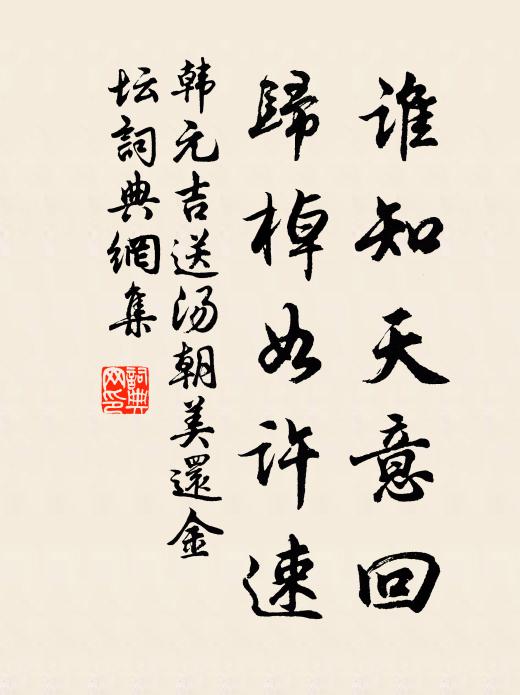 谁知天意回
歸棹如许速
韩元吉送汤朝美還金
坛詞典網集
詞典网印